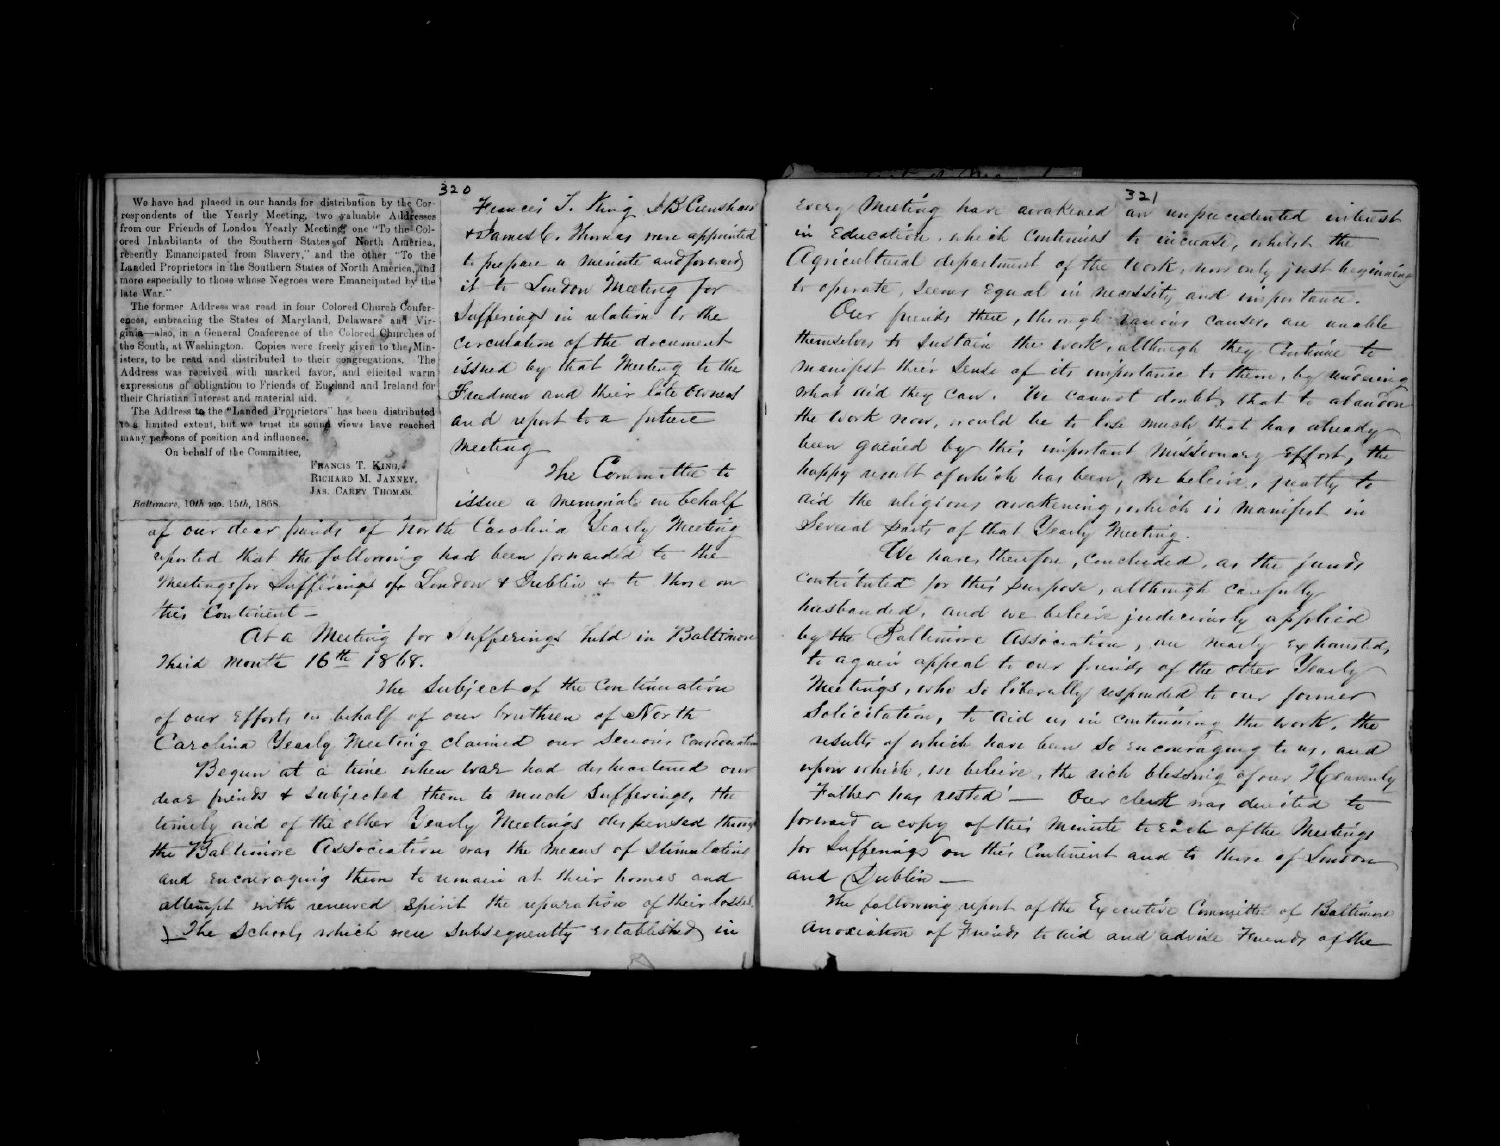 320
We have had placed in our hands for distribution by the Cor-
respondents of the Yearly Meeting, two valuable Addresses
from our Friends of London Yearly Meeting; one "To the Col-
ored Inhabitants of the Southern States of North America,
recently Emancipated from Slavery," and the other "To the
Landed Proprietors in the Southern States of North America, and
more especially to those whose Negroes were Emancipated by the
late War."
The former Address was read in four Colored Church Confer-
ences, embracing the States of Maryland, Delaware and Vir-
ginia—also, in a General Conference of the Colored Churches of
the South, at Washington. Copies were freely given to the Min-
isters, to be read and distributed to their congregations. The
Address was received with marked favor, and elicited warm
expressions of obligation to Friends of England and Ireland for
their Christian interest and material aid.
The Address to the "Landed Proprietors" has been distributed
to a limited extent, but we trust its sound views have reached
many persons of position and influence.
On behalf of the Committee,
Francis T. King,
Richard M. Janney,
Jas. Carey Thomas.
Baltimore, 10th mo. 15th, 1868.
Francis T. King J B Crenshaw
& James C. Thomas were appointed
to prepare a minute and forward
it to London Meeting for
Sufferings in relation to the
circulation of the document
issued by that Meeting to the
Freedmen and their late owners
and report to a future
meeting
The Committee to
issue a memorial on behalf
of our dear friends of North Carolina Yearly Meeting
reported that the following had been forwarded to the
Meetings for Sufferings of London & Dublin & to those on
this Continent —
At a Meeting for Sufferings held in Baltimore
Third month 16th 1868.
The Subject of the Continuation
of our Efforts on behalf of our brethren of North
Carolina Yearly Meeting claimed our serious consideration
Begun at a time when war had disheartened our
dear friends & subjected them to much Sufferings, the
timely aid of the other Yearly Meetings dispensed through
the Baltimore Association was the means of stimulating
and encouraging them to remain at their homes and
attempt with renewed spirit the reparation of their losses.
The Schools which were subsequently established in
321
every Meeting have awakened an unprecedented interest
in Education, which continues to increase, whilst the
Agricultural department of the work, now only just beginning
to operate, seems equal in necessity and importance.
Our friends there, through various causes, are unable
themselves to sustain the work, although they continue to
manifest their sense of its importance to them, by rendering
what aid they can. We cannot doubt, that to abandon
the work now, would be to lose much that has already
been gained by this important missionary effort, the
happy result of which has been, we believe, greatly to
aid the religious awakening, which is manifest in
several parts of that Yearly Meeting.
We have, therefore, concluded, as the funds
contributed for this purpose, although carefully
husbanded, and we believe judiciously applied
by the Baltimore Association, are nearly exhausted,
to again appeal to our friends of the other Yearly
Meetings, who so liberally responded to our former
Solicitation, to aid us in continuing the work, the
results of which have been so encouraging to us, and
upon which, we believe, the rich blessing of our Heavenly
Father has rested — Our clerk was directed to
forward a copy of this Minute to each of the Meetings
for Sufferings on this Continent and to those of London
and Dublin —
The following report of the Executive Committee of Baltimore
Association of Friends to aid and advise Friends of the